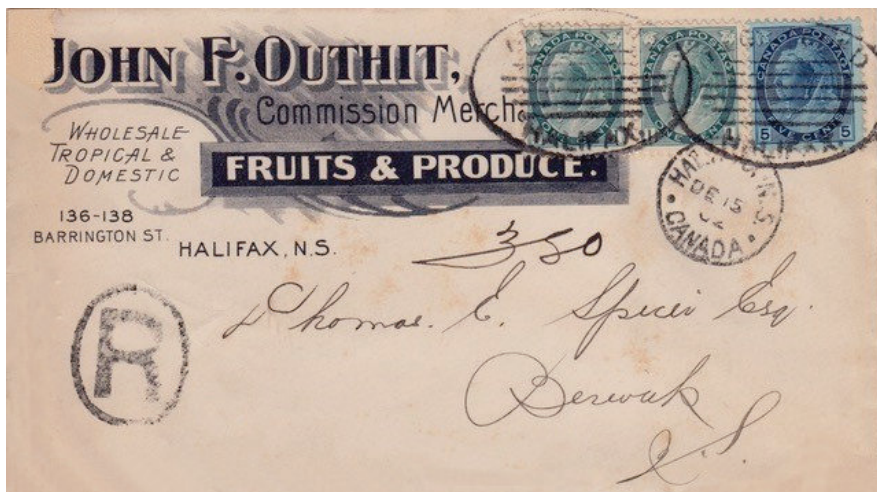 JOHN F. OUTHIT,
Commission Merch
WHOLESALE
TROPICAL &
DOMESTIC
FRUITS & PRODUCE.
136-138
BARRINGTON ST.
HALIFAX, N.S.
CANADA POSTAGE
ONE CENT
CANADA POSTAGE
ONE CENT
CANADA POSTAGE
5 FIVE CENTS 5
HALIFAX
HALIFAX
N.S.
DE 15
02
CANADA
350
R
Thomas. E. Spicer Esq.
Berwick
N.S.